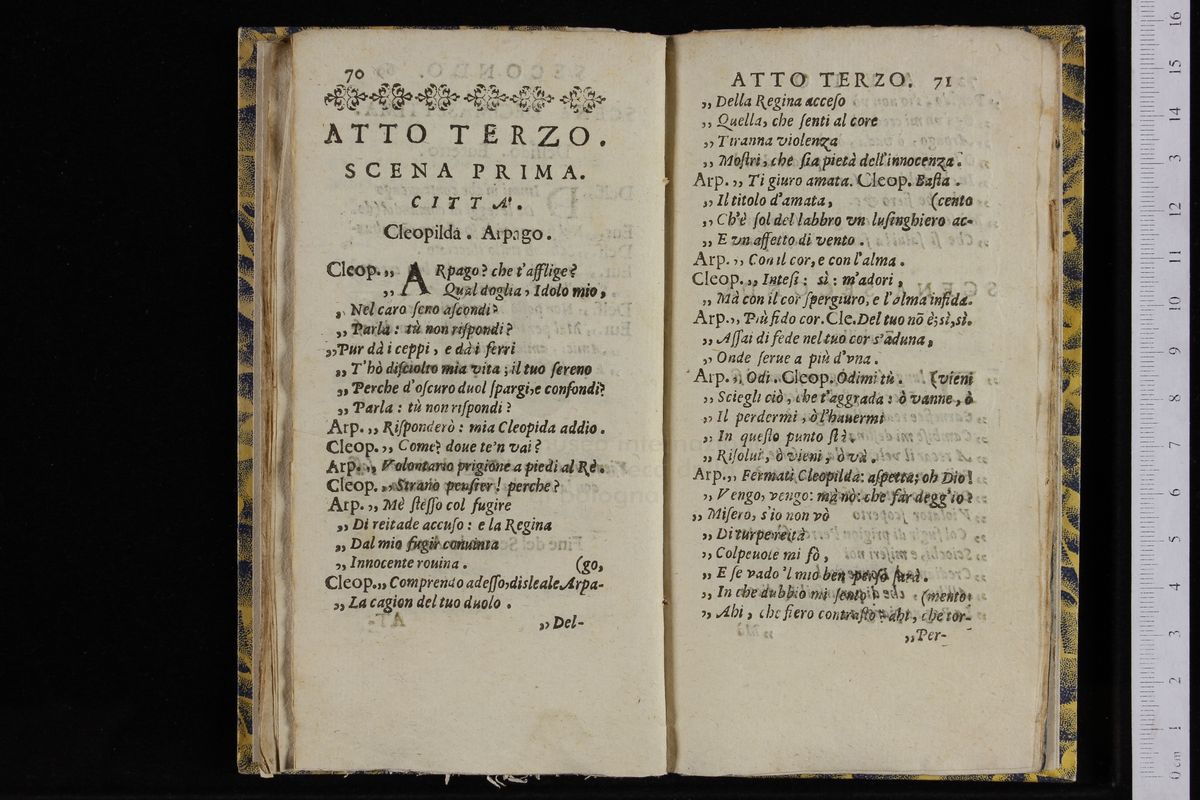 70
ATTO TERZO.
SCENA PRIMA.
CITTA'.
Cleopilda. Arpago.
Cleop.,, ARpago? che t'afflige?
,, Qual doglia, Idolo mio,
,, Nel caro seno ascondi?
,, Parla: tù non rispondi?
,,Pur dà i ceppi, e dà i ferri
,, T'hò disciolto mia vita; il tuo sereno
,, Perche d'oscuro duol spargi, e confondi?
,, Parla: tù non rispondi?
Arp.,, Risponderò: mia Cleopida addio.
Cleop.,, Come? doue te'n vai?
Arp.,, Volontario prigione a piedi al Rè.
Cleop.,, Strano pensier! perche?
Arp.,, Mè stesso col fugire
,, Di reitade accuso: e la Regina
,, Dal mio fugir conuinta
,, Innocente rouina. (go,
Cleop.,, Comprendo adesso, disleale Arpa-
,, La cagion del tuo duolo.
,, Del-
ATTO TERZO. 71
,, Della Regina acceso
,, Quella, che senti al core
,, Tiranna violenza
,, Mostri, che sia pietà dell'innocenza.
Arp.,, Ti giuro amata. Cleop. Basta.
,, Il titolo d'amata, (cento
,, Ch'è sol del labbro vn lusinghiero ac-
,, E vn affetto di vento.
Arp.,, Con il cor, e con l'alma.
Cleop.,, Intesi: sì: m'adori,
,, Mà con il cor spergiuro, e l'alma infida.
Arp.,, Più fido cor. Cle. Del tuo nō è; sì, sì.
,, Assai di fede nel tuo cor s'aduna,
,, Onde serue a più d'vna.
Arp.,, Odi. Cleop. Odimi tù. (vieni
,, Sciegli ciò, che t'aggrada: ò vanne, ò
,, Il perdermi, ò l'hauermi
,, In questo punto stà.
,, Risolui, ò vieni, ò và.
Arp.,, Fermati Cleopilda: aspetta; oh Dio!
,, Vengo, vengo: mà nò: che far degg'io?
,, Misero, s'io non vò
,, Di turpe reità
,, Colpeuole mi fò,
,, E se vado 'l mio ben perso sarà.
,, In che dubbio mi sento! (mento:
,, Ahi, che fiero contrasto? ahi, che tor-
,, Per-
16
15
14
13
12
11
10
9
8
7
6
5
4
3
2
1
0 cm